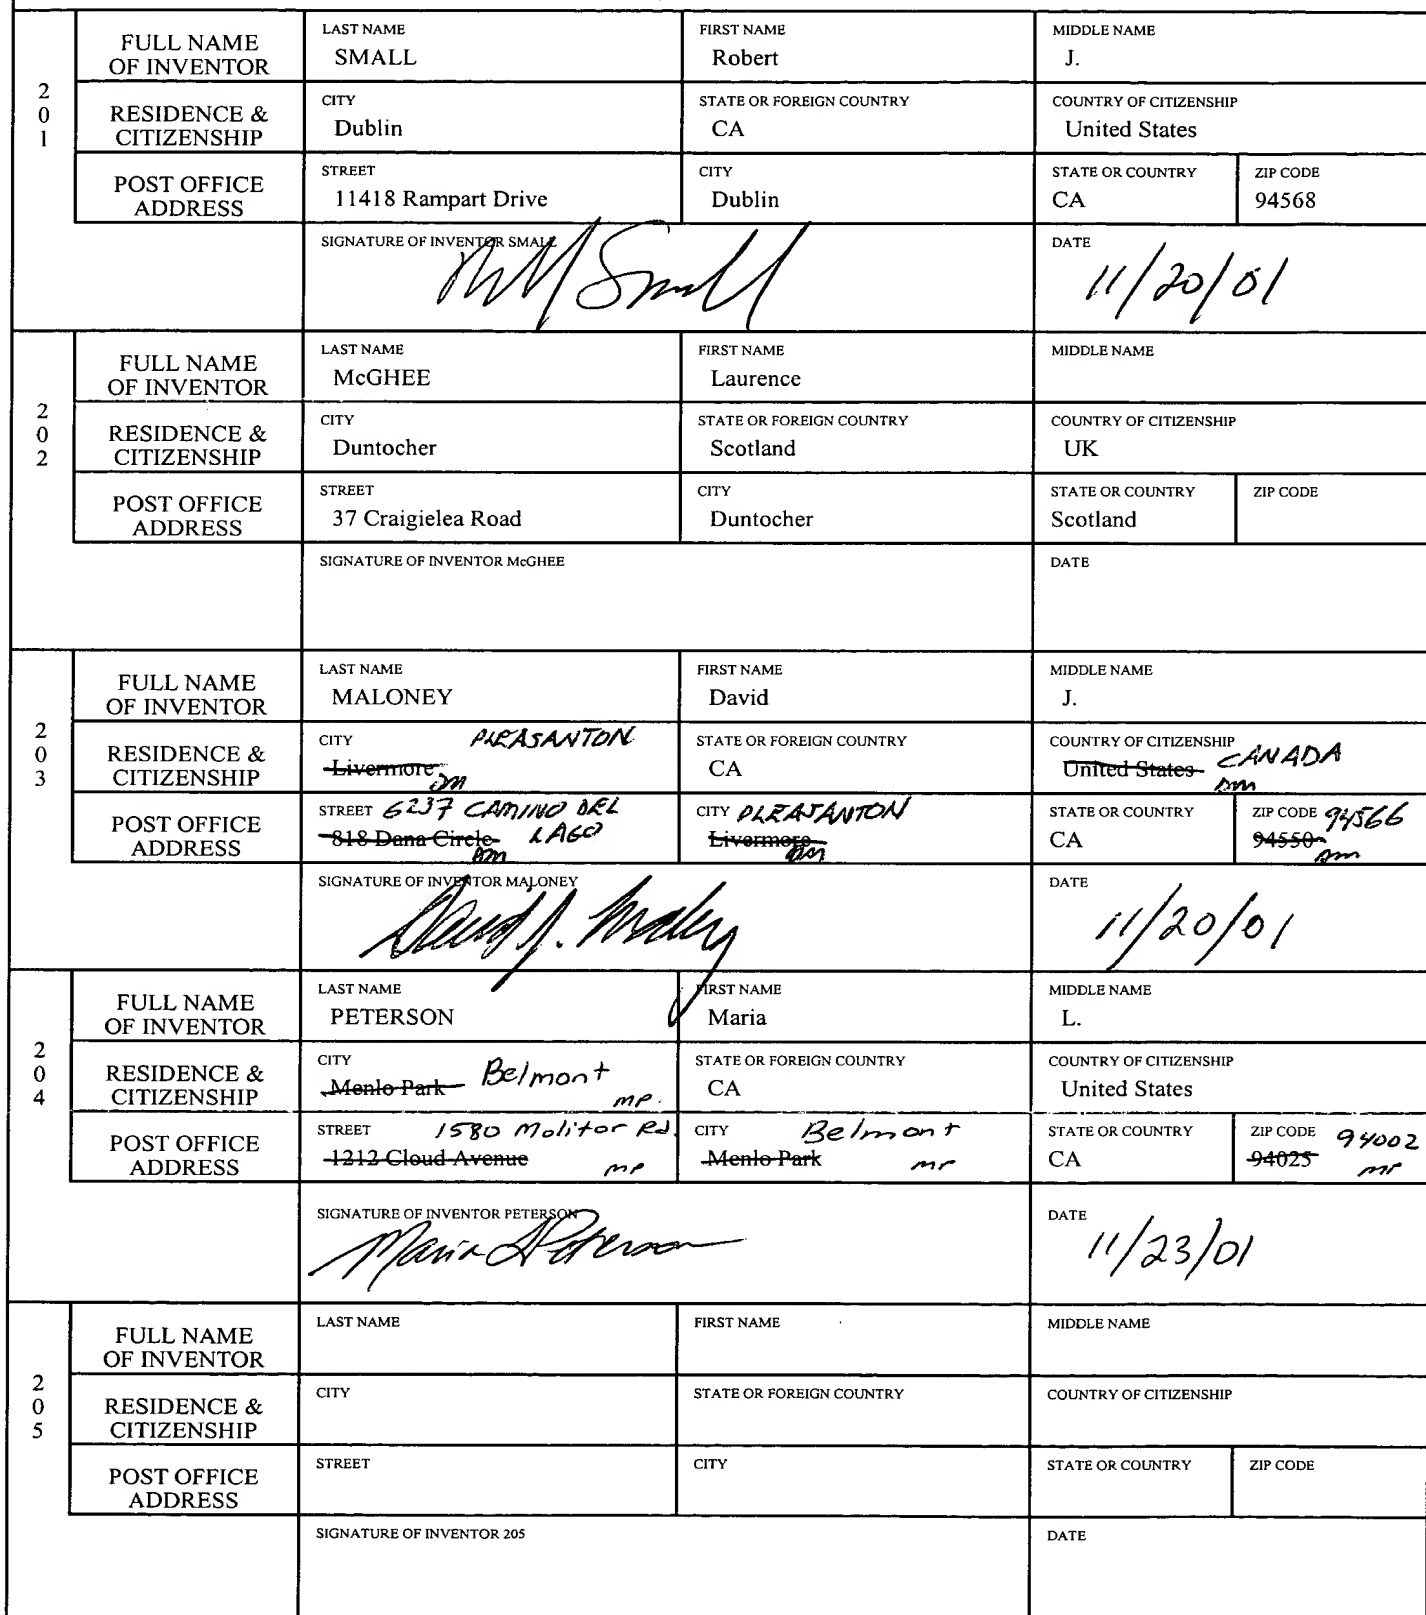 201
FULL NAME OF INVENTOR
LAST NAME SMALL
FIRST NAME Robert
MIDDLE NAME J.
RESIDENCE & CITIZENSHIP
CITY Dublin
STATE OR FOREIGN COUNTRY CA
COUNTRY OF CITIZENSHIP United States
POST OFFICE ADDRESS
STREET 11418 Rampart Drive
CITY Dublin
STATE OR COUNTRY CA
ZIP CODE 94568
SIGNATURE OF INVENTOR SMALL
DATE 11/20/01
202
FULL NAME OF INVENTOR
LAST NAME McGHEE
FIRST NAME Laurence
MIDDLE NAME
RESIDENCE & CITIZENSHIP
CITY Duntocher
STATE OR FOREIGN COUNTRY Scotland
COUNTRY OF CITIZENSHIP UK
POST OFFICE ADDRESS
STREET 37 Craigielea Road
CITY Duntocher
STATE OR COUNTRY Scotland
ZIP CODE
SIGNATURE OF INVENTOR McGHEE
DATE
203
FULL NAME OF INVENTOR
LAST NAME MALONEY
FIRST NAME David
MIDDLE NAME J.
RESIDENCE & CITIZENSHIP
CITY PLEASANTON
Livermore DM
STATE OR FOREIGN COUNTRY CA
COUNTRY OF CITIZENSHIP CANADA
United States DM
POST OFFICE ADDRESS
STREET 6237 CAMINO DEL LAGO
818 Dana Circle DM
CITY PLEASANTON
Livermore DM
STATE OR COUNTRY CA
ZIP CODE 94566
94550 DM
SIGNATURE OF INVENTOR MALONEY
David J. Maloney
DATE 11/20/01
204
FULL NAME OF INVENTOR
LAST NAME PETERSON
FIRST NAME Maria
MIDDLE NAME L.
RESIDENCE & CITIZENSHIP
CITY Menlo Park Belmont MP.
STATE OR FOREIGN COUNTRY CA
COUNTRY OF CITIZENSHIP United States
POST OFFICE ADDRESS
STREET 1580 Molitor Rd.
1212 Cloud Avenue MP
CITY Belmont
Menlo Park MP
STATE OR COUNTRY CA
ZIP CODE 94002
94025 MP
SIGNATURE OF INVENTOR PETERSON
Maria L Peterson
DATE 11/23/01
205
FULL NAME OF INVENTOR
LAST NAME
FIRST NAME
MIDDLE NAME
RESIDENCE & CITIZENSHIP
CITY
STATE OR FOREIGN COUNTRY
COUNTRY OF CITIZENSHIP
POST OFFICE ADDRESS
STREET
CITY
STATE OR COUNTRY
ZIP CODE
SIGNATURE OF INVENTOR 205
DATE